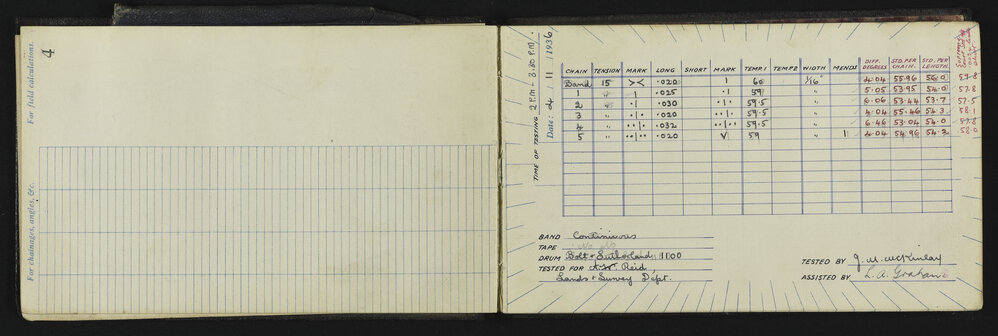 4
For field calculations.
For chainages, angles, &c.
TIME OF TESTING 2 P.M - 3.30 P.M.
Date: 4 | 11 | 1936
CHAIN TENSION MARK LONG SHORT MARK TEMP.1 TEMP.2 WIDTH MENDS DIFF. DEGREES STD. PER CHAIN. STD. PER LENGTH.
Band 15 >< .020 1 60 1/16" 4.04 55.96 56.0 57.8
1 " | .025 .| 59 " 5.05 53.95 54.0 57.8
2 " .| .030 .|. 59.5 " 6.06 53.44 53.7 57.5
3 " .|. .020 ..|. 59.5 " 4.04 55.46 54.3 58.1
4 " ..|. .032 ..|.. 59.5 " 6.46 53.04 54.0 57.8
5 " ..|.. .020 V 59 " 11 4.04 54.96 54.2 58.0
BAND Continuous
TAPE No No
DRUM Bolt & Sutherland, 1100
TESTED FOR A. W. Reid,
Lands & Survey Dept.
TESTED BY J. M. McKinlay
ASSISTED BY L. A. Graham